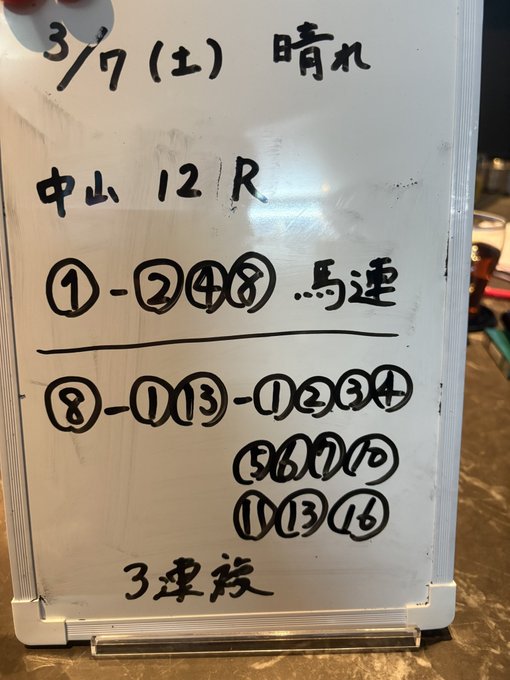 3/7(土) 晴れ
中山 12R
①-②④⑧ 馬連
⑧-①⑬-①②③④
⑤⑥⑦⑩
⑪⑬⑯
3連複